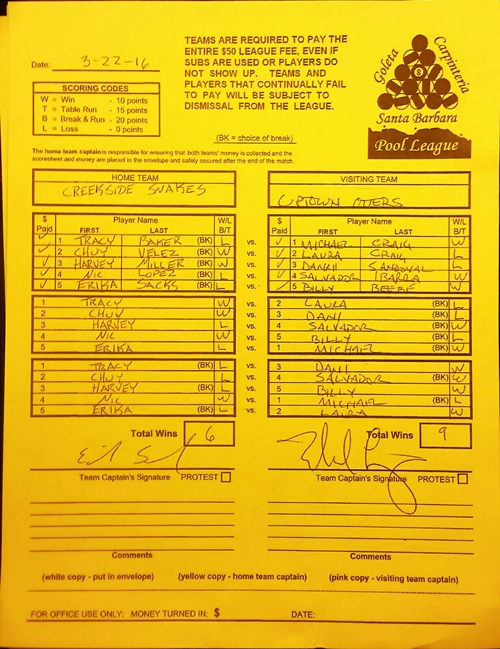 Date: 3-22-16
TEAMS ARE REQUIRED TO PAY THE
ENTIRE $50 LEAGUE FEE, EVEN IF
SUBS ARE USED OR PLAYERS DO
NOT SHOW UP. TEAMS AND
PLAYERS THAT CONTINUALLY FAIL
TO PAY WILL BE SUBJECT TO
DISMISSAL FROM THE LEAGUE.
Goleta Carpinteria
8
Santa Barbara
Pool League
SCORING CODES
W = Win - 10 points
T = Table Run - 15 points
B = Break & Run - 20 points
L = Loss - 0 points
(BK = choice of break)
The home team captain is responsible for ensuring that both teams' money is collected and the
scoresheet and money are placed in the envelope and safely secured after the end of the match.
HOME TEAM VISITING TEAM
CREEKSIDE SNAKES UPTOWN OTTERS
$ Paid Player Name FIRST LAST W/L B/T $ Paid Player Name FIRST LAST W/L B/T
1 TRACY BAKER (BK) L vs. 1 MICHAEL CRAIG W
2 CHUY VELEZ (BK) W vs. 2 LAURA CRAIG L
3 HARVEY MILLER (BK) W vs. 3 DANNI SANDOVAL L
4 NIC LOPEZ (BK) L vs. 4 SALVADOR IBARRA W
5 ERIKA SACKS (BK) L vs. 5 BILLY W
1 TRACY W vs. 2 LAURA (BK) L
2 CHUY W vs. 3 DANI (BK) L
3 HARVEY L vs. 4 SALVADOR (BK) W
4 NIC W vs. 5 BILLY (BK) L
5 ERIKA L vs. 1 MICHAEL (BK) W
1 TRACY (BK) L vs. 3 DANI W
2 CHUY L vs. 4 SALVADOR (BK) W
3 HARVEY (BK) L vs. 5 BILLY W
4 NIC W vs. 1 MICHAEL (BK) L
5 ERIKA (BK) L vs. 2 LAURA W
Total Wins 6 Total Wins 9
Team Captain's Signature PROTEST Team Captain's Signature PROTEST
Comments Comments
(white copy - put in envelope) (yellow copy - home team captain) (pink copy - visiting team captain)
FOR OFFICE USE ONLY: MONEY TURNED IN: $ DATE: